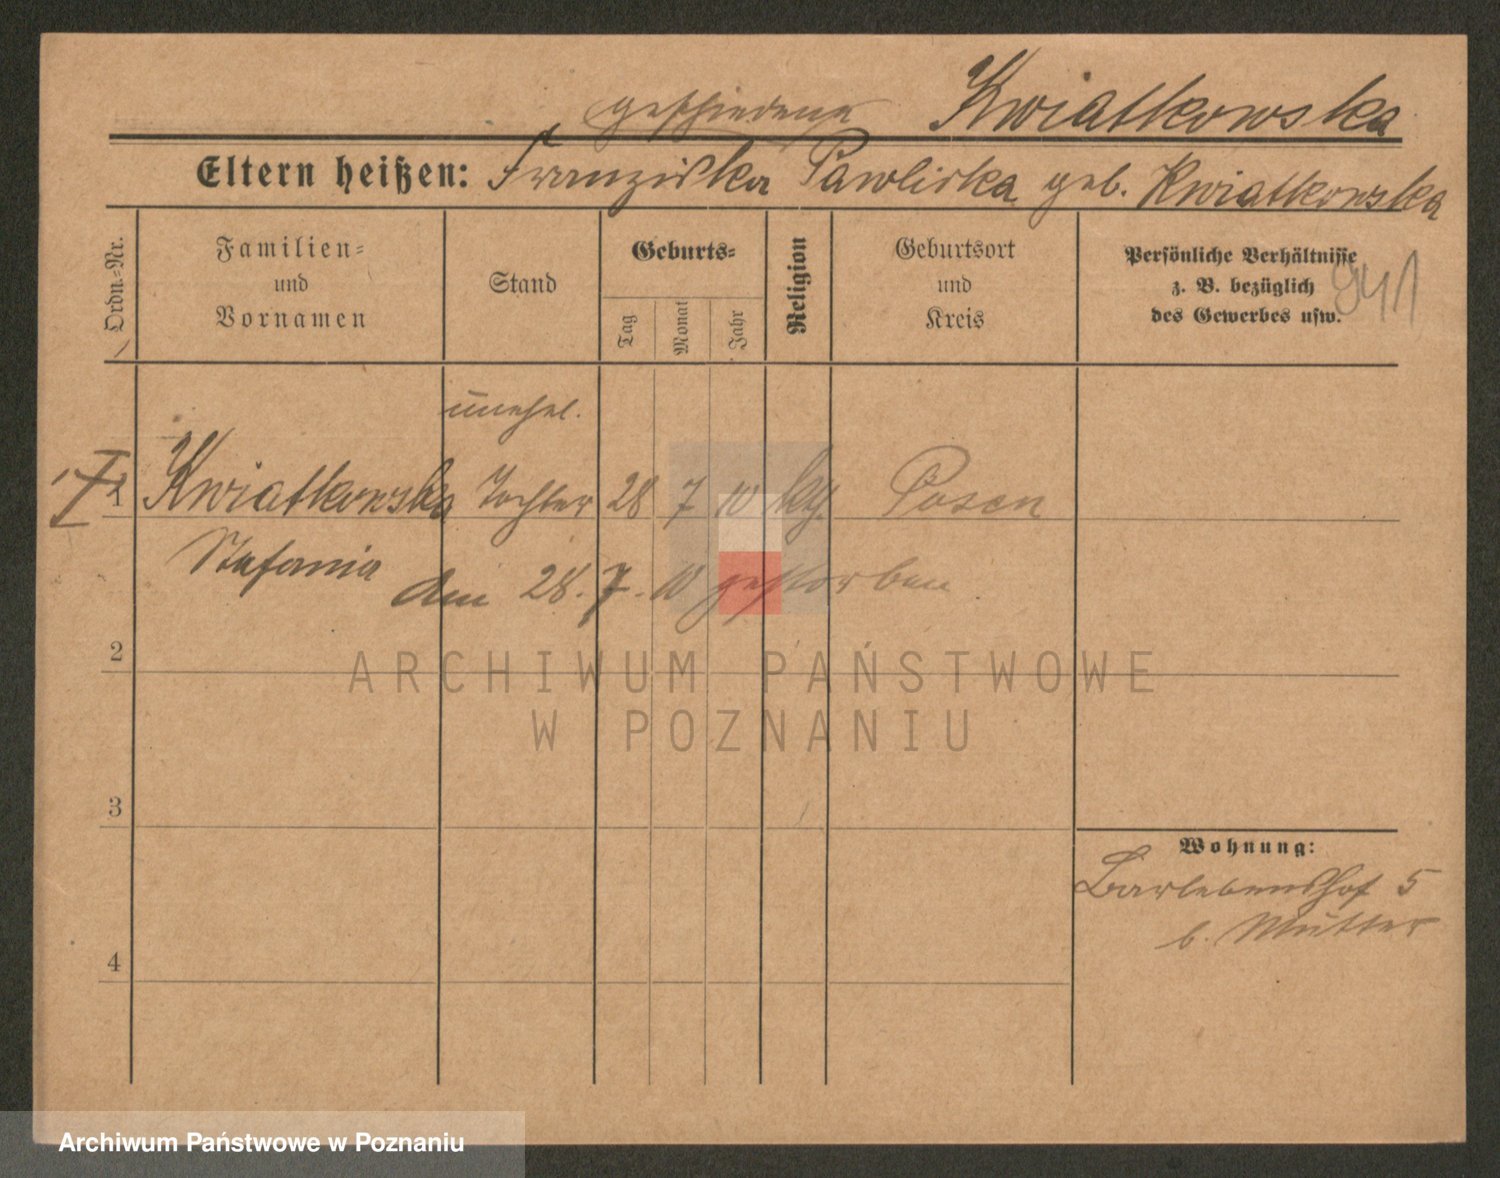 geschiedene Kwiatkowska
Eltern heißen: Franziska Pawlicka geb. Kwiatkowska
Ordn.-Nr.
Familien-
und
Vornamen
Stand
Geburts-
Tag
Monat
Jahr
Religion
Geburtsort
und
Kreis
Persönliche Verhältnisse
z. B. bezüglich
des Gewerbes usw.
941
unehel.
1 Kwiatkowska Tochter 28 7 10 kth. Posen
Stefania
den 28. 7. 10 gestorben
2
ARCHIWUM PAŃSTWOWE
W POZNANIU
3
Wohnung:
Barlebenshof 5
b. Mutter
4
Archiwum Państwowe w Poznaniu